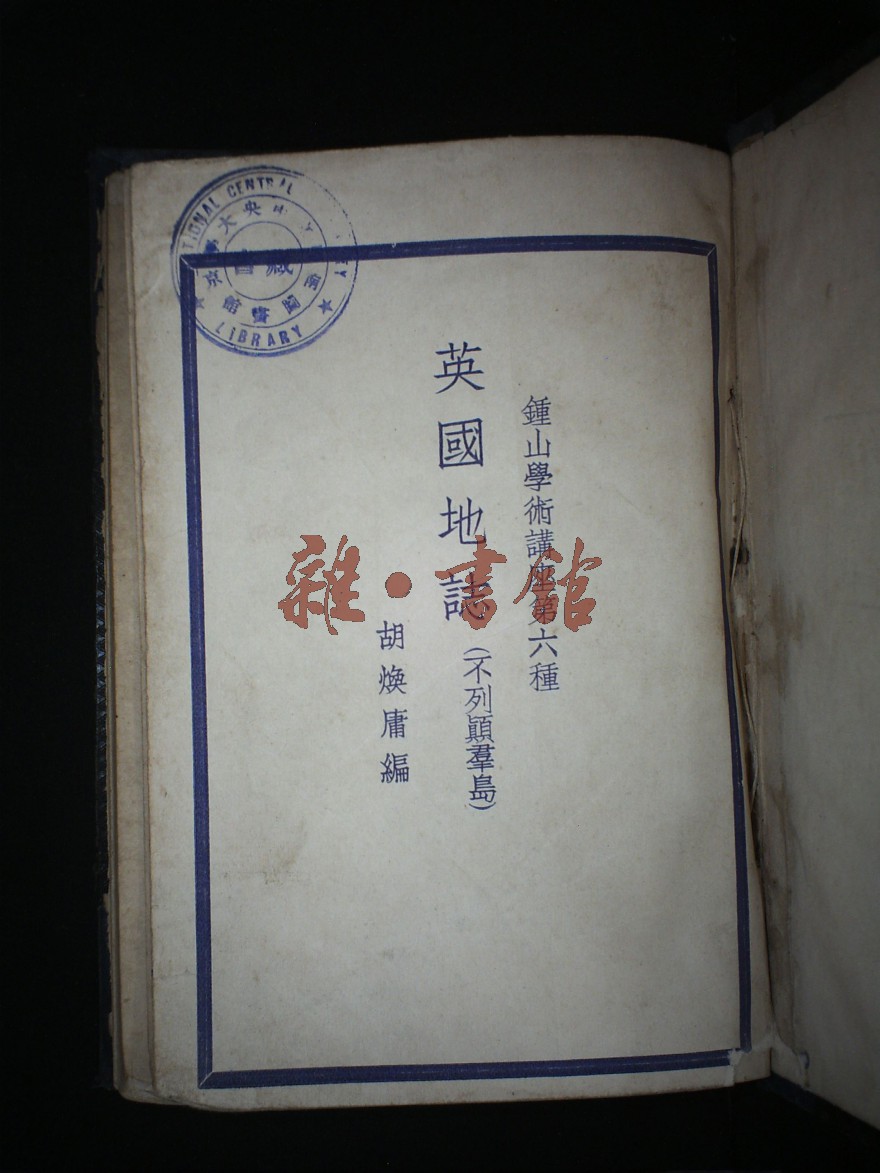 鍾山學術講座第六種
英國地誌(不列顛羣島)
胡煥庸編
NATIONAL CENTRAL
LIBRARY
央大
南
圖書館
京
藏
雜·書館